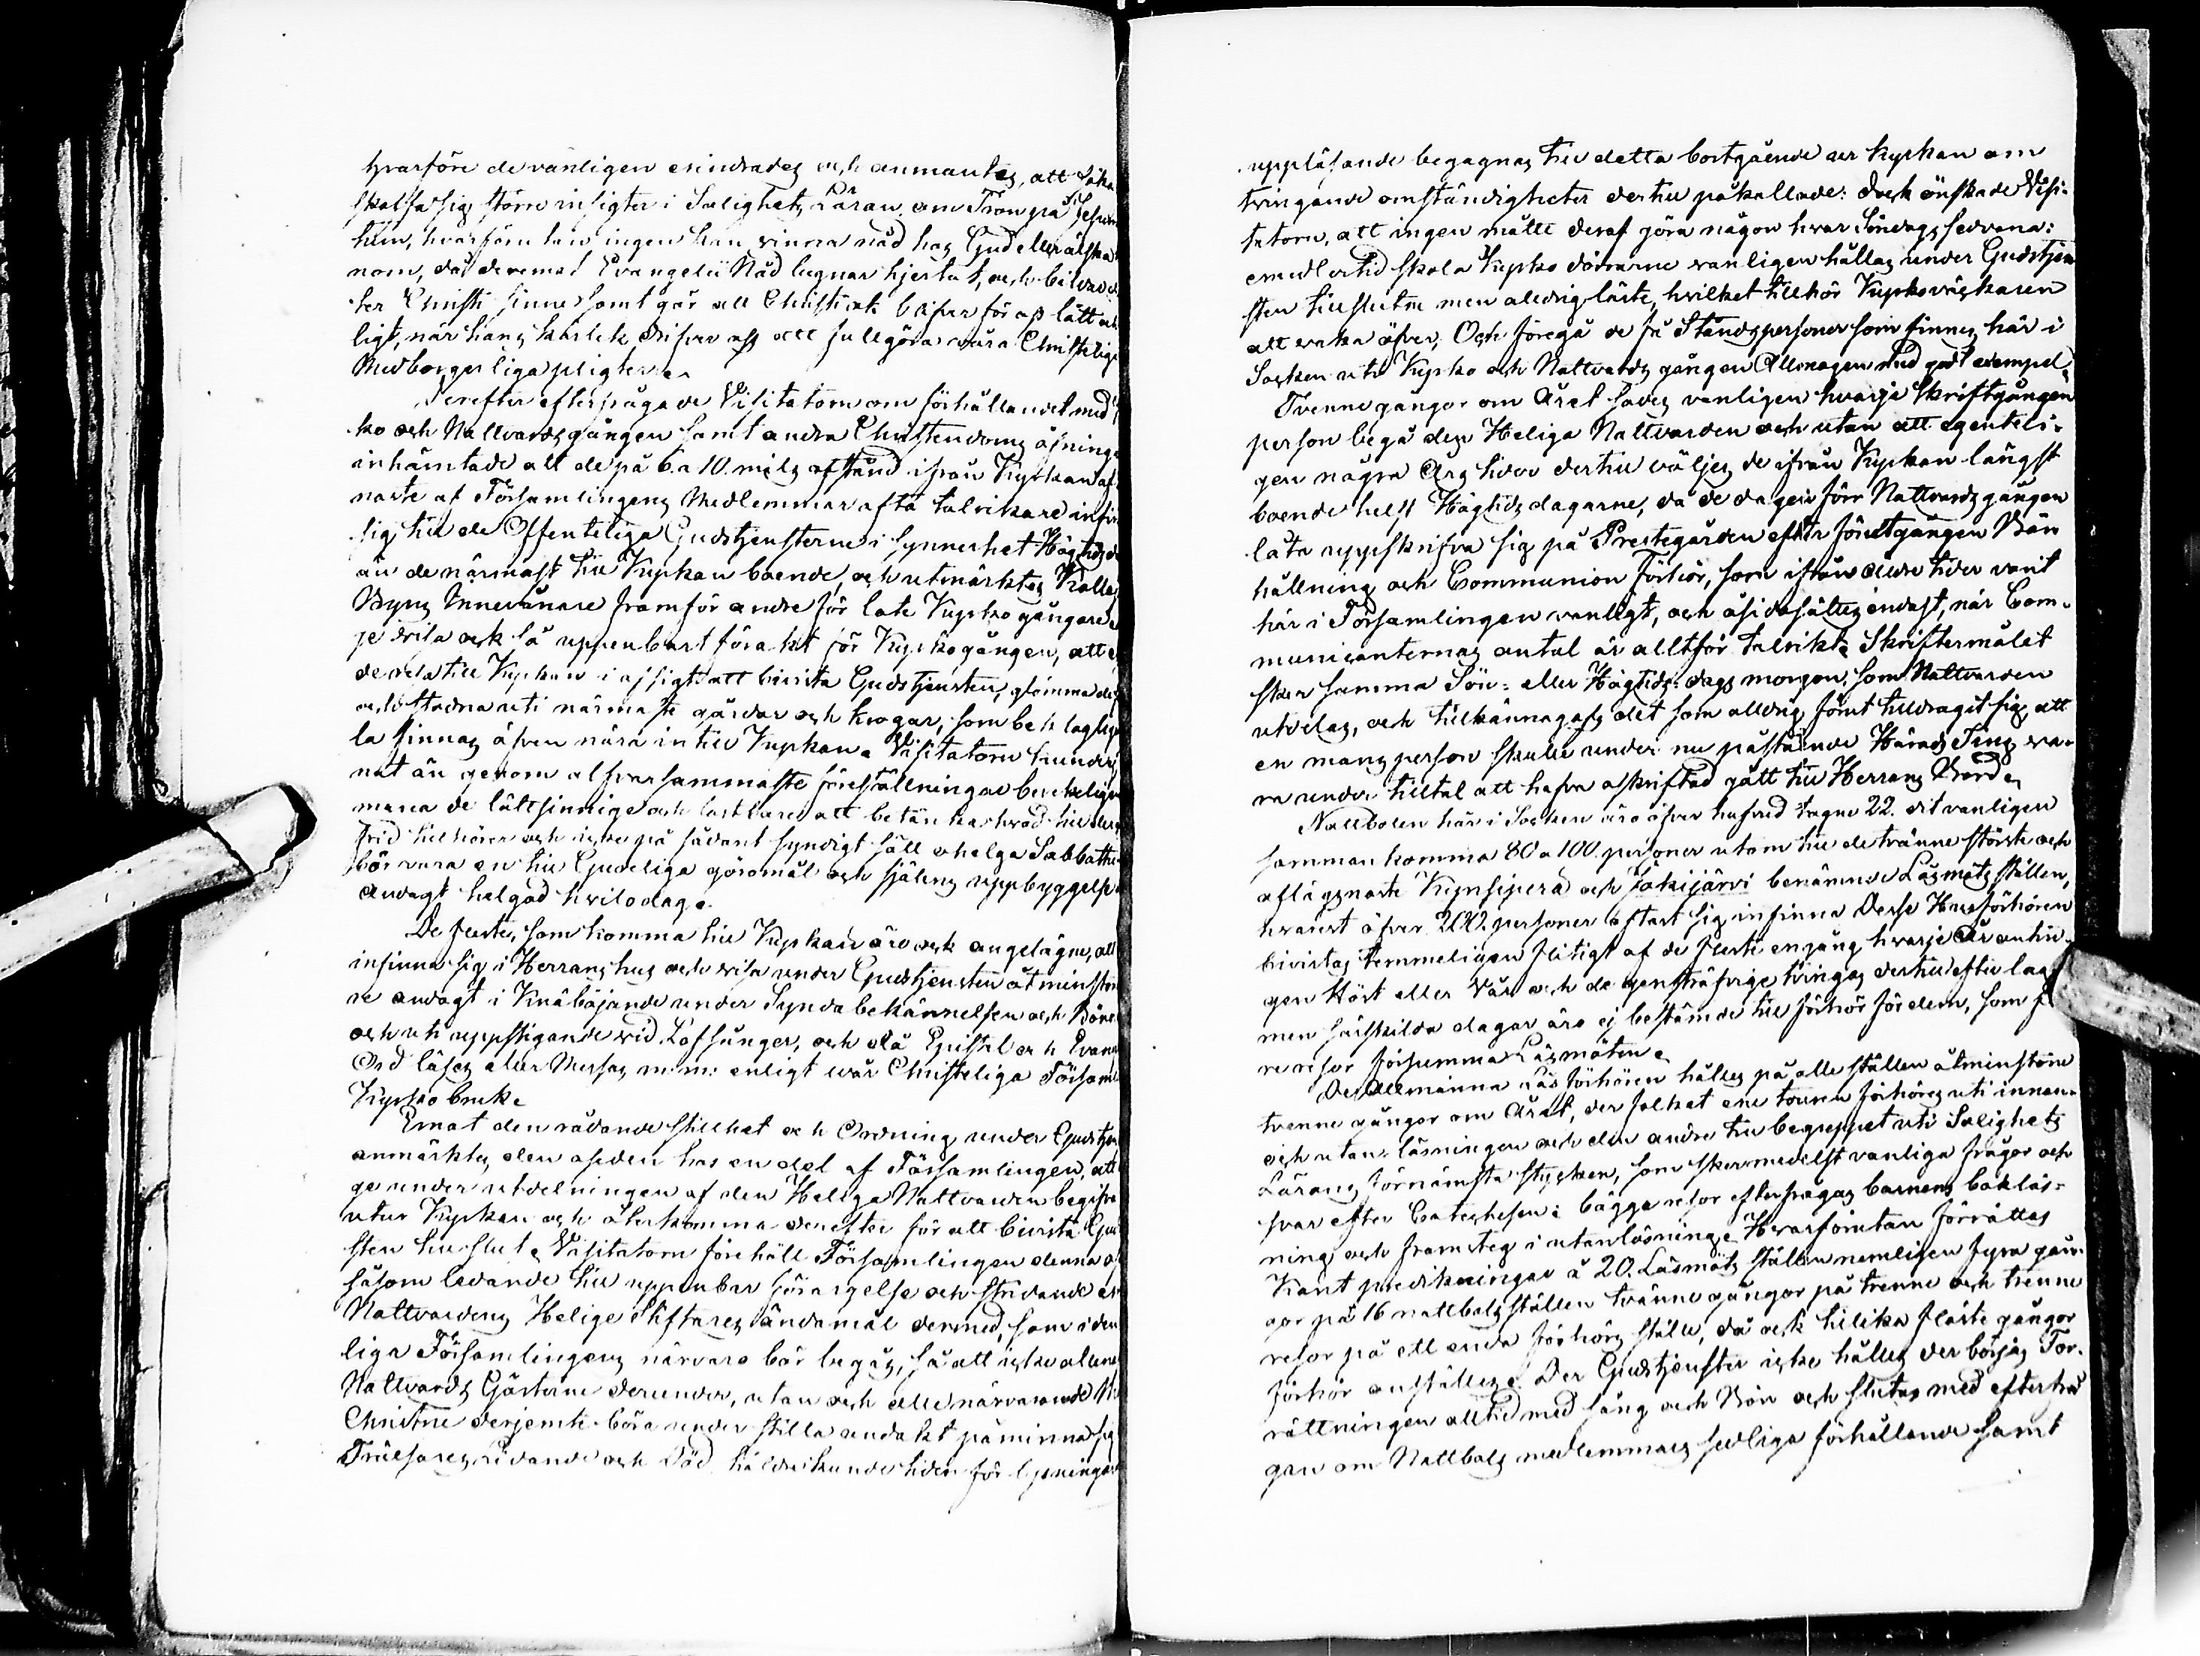 hvarföre de vänligen erindrades och anmantes, att söka
skaffa sig större insigter i Salighets Läran om Tron på Jesum
hvarförutan ingen kan vinna nåd hos Gud eller älska
nom, då deremot Evangelii Nåd lugnar hjertat, och bilda
ter Christi sinne samt gör all Christi ok blifver för oss lätt och
ligt, när hans kärlek drifver oss att fullgöra våra Christelige
Medborgerliga pligter.
Derefter efterfrågade Visitatorn om förhållandet med
ko och Nattvardsgången samt andra Christendoms öfninga
inhämtade att de på 6 a 10. mils afstånd ifrån Kyrkan af
naste af Församlingens Medlemmar ofta talrikare infin
sig till de Offenteliga Gudstjensterne i synnerhet Högtids
än de närmast till Kyrkan boende, och utmärktes Kalla
Byns Innevånare framför andre för late Kyrkogångare
je visa ock så uppenbart förakt för Kyrkogången, att
de till Kyrkan i afsigt att bivista Gudstjensten, glömma
och stadna uti närmaste gårdar och krogar, som beklaglige
la finnas äfven nära in till Kyrkan. Visitatorn kunde
nat än genom alfvarsammaste föreställningar bevekeligen
mana de lättsinnige och lastbare att betänka hvad till deras
frid tillhörer och icke på sådant syndigt sätt ohelga Sabbathen
bör vara en till Gudeliga göromål och själens uppbyggelse
andagt helgad hvilodag.
De fleste, som komma till Kyrkan äro ock angelägne, att
infinna sig i Herrans hus och visa under Gudstjensten åtminstone
re andagt i Knäböjande under Synda bekännelsen och Böne
och uti uppstigande vid Lofsånger, och då Epistel och Evan
Ord läses eller Messas m:m: enligt vår Christeliga Försam
Kyrko bruk.
Emot den rådande stillhet och Ordning under Gudstjen
anmärktes den oseden hos en del af Församlingen, att
ge under utdelningen af den Heliga Nattvarden begifva
utur Kyrkan och återkomma derefter för att bivista Gud
sten till slut. Visitatorn förehöll Församlingen denna o
såsom ledande till uppenbar förargelse och stridande
Nattvardens Helige Stiftares ändamål dermed, som i den
liga Församlingens närvaro bör begås, så att icke allena
Nattvards Gästerne derunder, utan och alla närvarande
Christne derjemte böra under stilla andakt påminna sig
Frälsarens lidande och Död
uppläsande begagnas till detta bortgående ur kyrkan om
tvingande omständigheter dertill påkallade: dock önskade Visi-
tatorn, att ingen måtte deraf göra någon hvar Söndags sedvana:
emedlertid skola Kyrko dörrarne vanligen hållas under Gudstjen
sten tillslutne men aldrig läste, hvilket tillhör Kyrkoväcktaren
att vaka öfver. Och föregå de få Ståndspersoner som finnes här i
Socken uti Kyrko och Nattvards gången Allmogen med godt exempel.
Tvenne gångor om Året sades vanligen hvarje Skriftgången
person begå den Heliga Nattvarden och utan att egenteli-
gen några Års tider dertill väljes de ifrån Kyrkan längst
boende helst Högtidsdagarne, då de dagen förr Nattvards gången
låta uppskrifva sig på Prestegården efter föregången Bön
hållning och Communion förhör, som ifrån äldre tider varit
här i Församlingen vanligt, och åsidosättes endast, när Com-
municanternas antal är alltför talrikt. Skriftermålet
sker samma Sön- eller Högtids-dags morgon, som Nattvarden
utdelas, och tillkännagafs det som aldrig förut tilldragit sig, att
en mans person skulle under nu påstående Härads Ting va-
ra under tilltal att hafva oskriftad gått till Herrans Bord.
Nattbolen här i Socken äro öfver hufvud tagne 22. dit vanligen
samman komma 80 a 100. personer utom till de tvänne störste och
aflägsnaste Kynsiperä och Jokijärvi benämnde Läsmöts ställen,
hvarest öfver 200. personer oftast sig infinna Desse Husförhören
bivistas temmeligen flitigt af de fleste en gång hvarje År antin
gen Höst eller Vår och de gensträfvige tvingas dertill efter lag
men särskilda dagar äro ej bestämde till förhör för dem, som f
re resor försumma Läsmöten.
De Allmänna Läs förhören hålles på alla ställen åtminstone
tvenne gångor om Året, der folket ena touren förhöres uti innan-
och utan läsningen och den andra till begreppet uti Salighets
Lärans förnämsta stycken, som sker medelst vanliga frågor och
svar efter Catechesen: bägge resor efterfrågas barnens bokläs-
ning och framsteg i utanläsning. Hvarförutan förrättas
Kort predikningar å 20. Läsmöts ställen nemligen fyra gån-
gor på 16 nattbolsställen tvänne gångor på trenne och trenne
resor på ett enda förhörs ställe, då ock tillika fläste gångor
förhör anställes. Der Gudstjenster icke hålles der börjas För-
rättningen alltid med sång och Bön och slutas med efterfrå
gan om Nattbols medlemmars sedliga förhållande samt